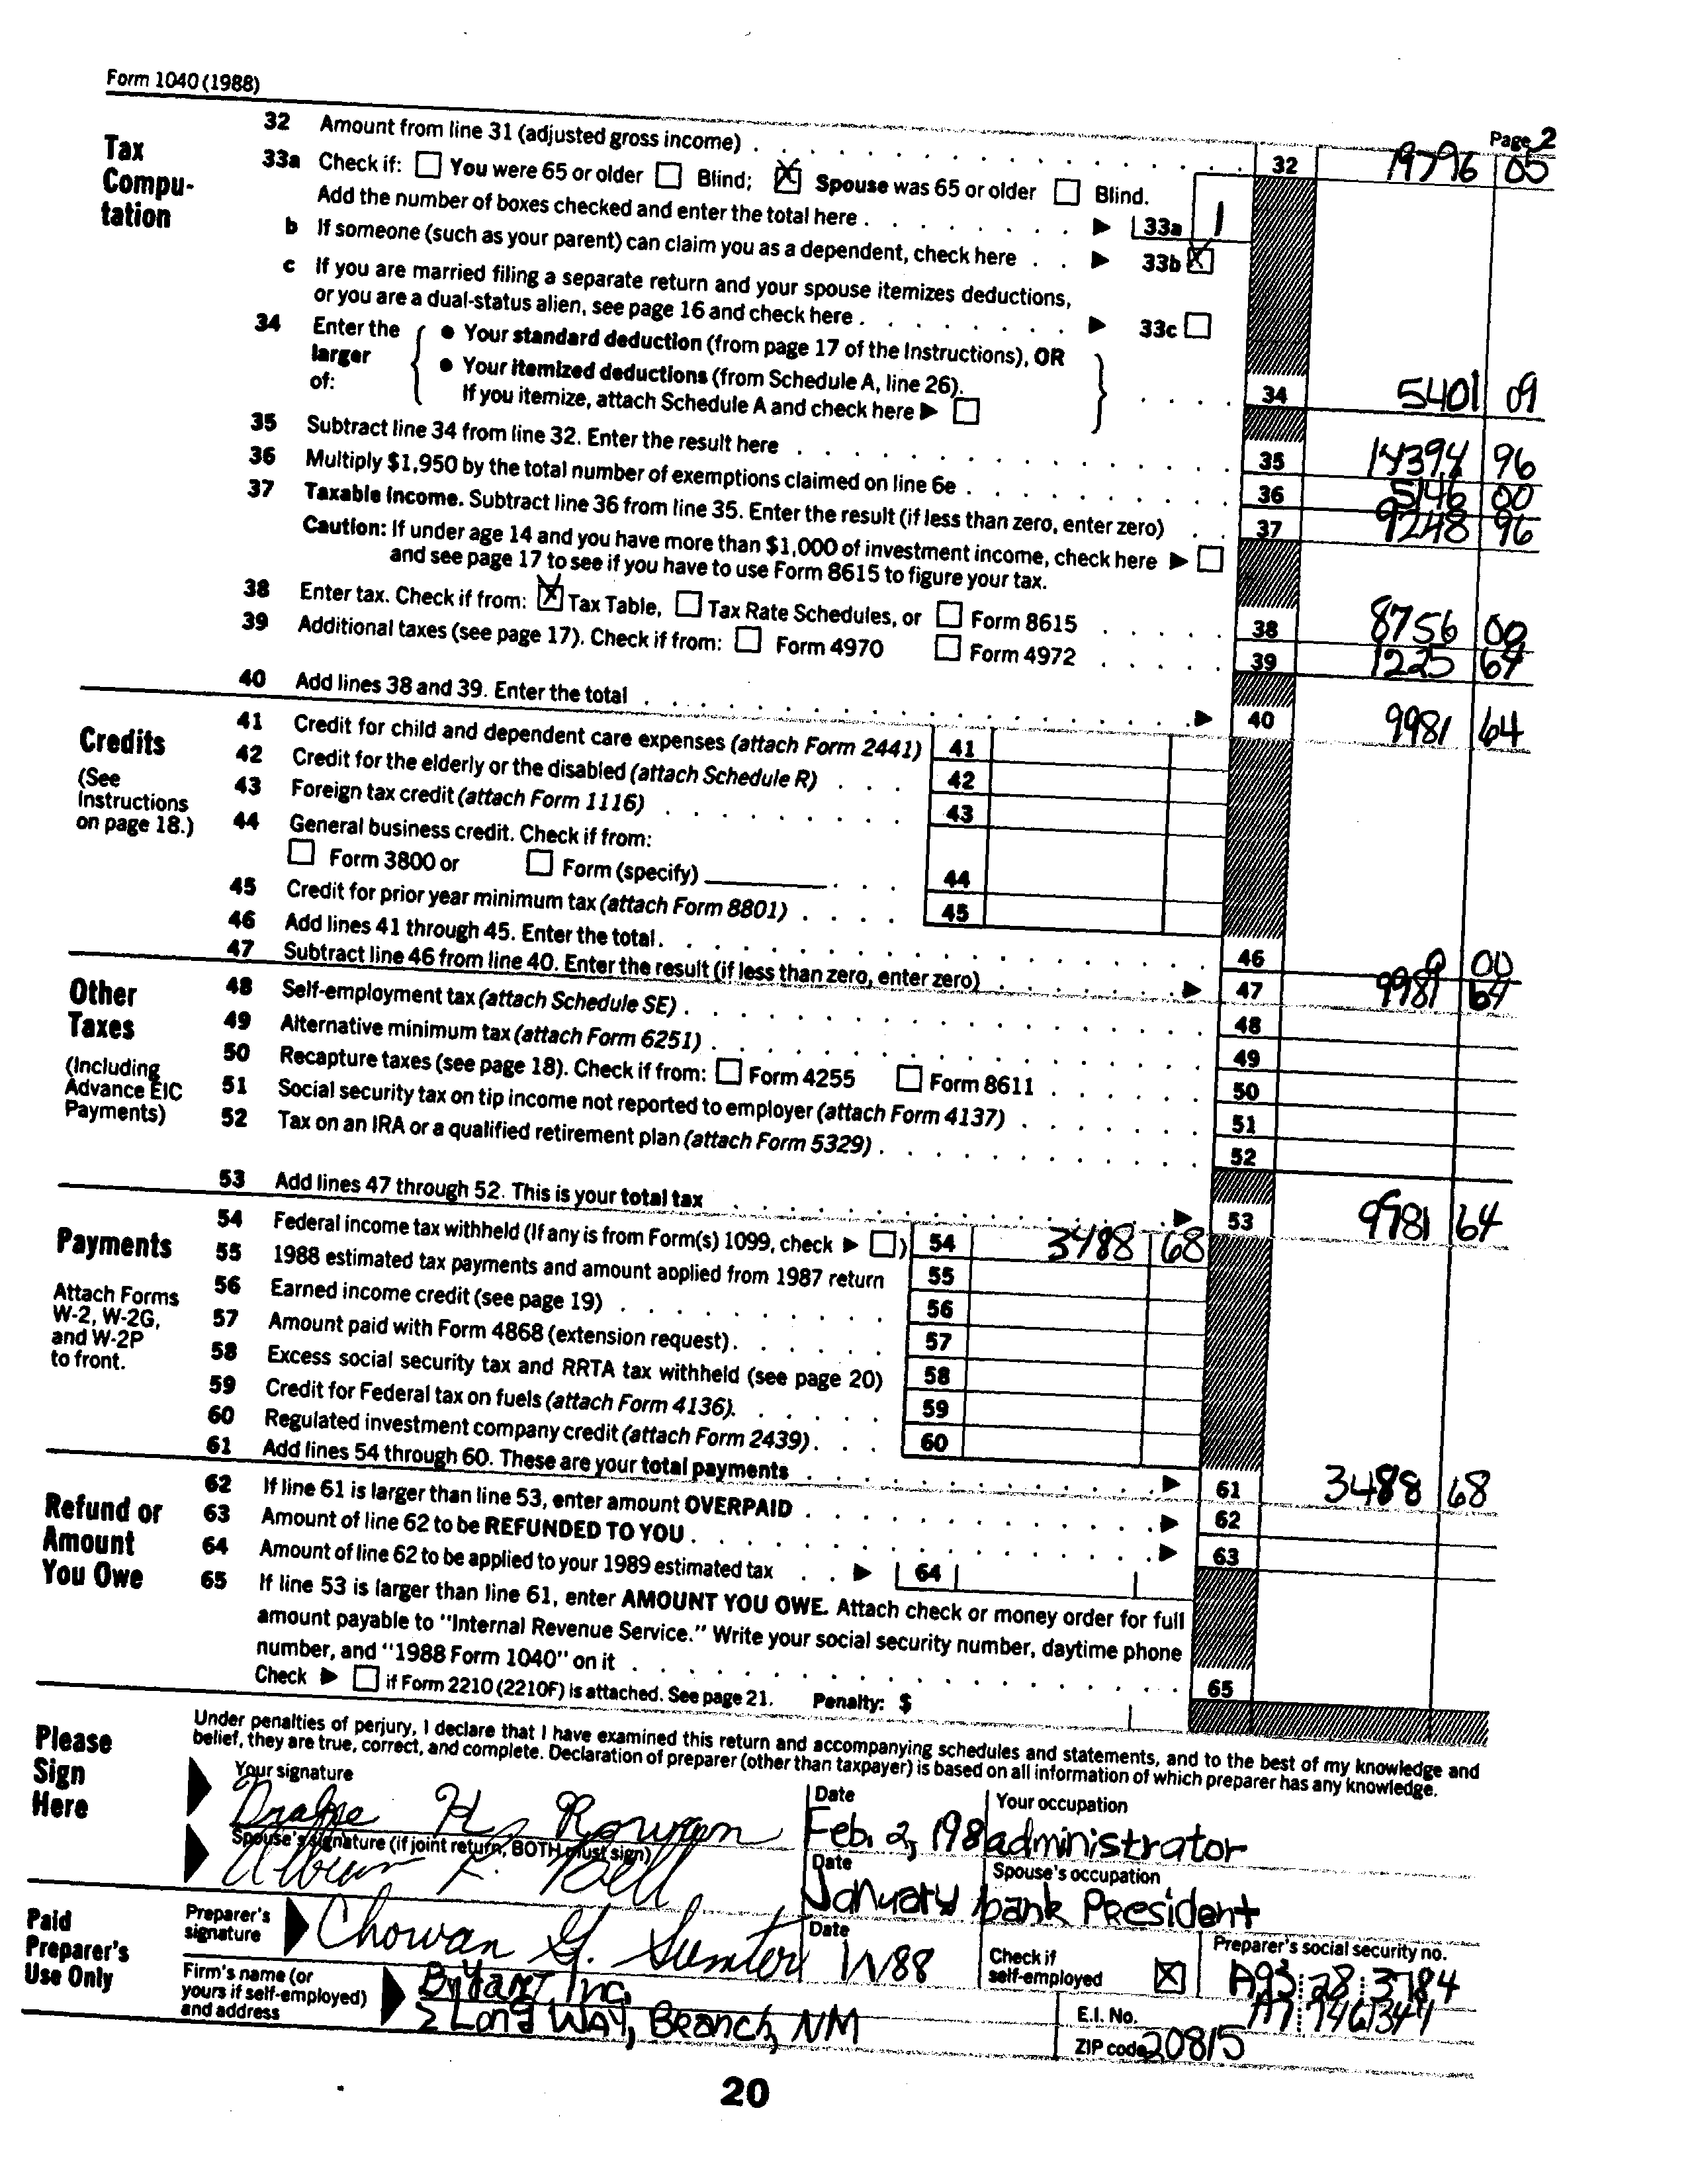 Form 1040 (1988)
Page 2
Tax Computation
32 Amount from line 31 (adjusted gross income) 32 19796 05
33a Check if: You were 65 or older Blind; X Spouse was 65 or older Blind.
Add the number of boxes checked and enter the total here 33a 1
b If someone (such as your parent) can claim you as a dependent, check here 33b X
c If you are married filing a separate return and your spouse itemizes deductions,
or you are a dual-status alien, see page 16 and check here 33c
34 Enter the larger of: • Your standard deduction (from page 17 of the Instructions), OR
• Your itemized deductions (from Schedule A, line 26).
If you itemize, attach Schedule A and check here 34 5401 09
35 Subtract line 34 from line 32. Enter the result here 35 14394 96
36 Multiply $1,950 by the total number of exemptions claimed on line 6e 36 5146 00
37 Taxable income. Subtract line 36 from line 35. Enter the result (if less than zero, enter zero) 37 9248 96
Caution: If under age 14 and you have more than $1,000 of investment income, check here
and see page 17 to see if you have to use Form 8615 to figure your tax.
38 Enter tax. Check if from: X Tax Table, Tax Rate Schedules, or Form 8615 38 8756 00
39 Additional taxes (see page 17). Check if from: Form 4970 Form 4972 39 1225 64
40 Add lines 38 and 39. Enter the total 40 9981 64
Credits
(See Instructions on page 18.)
41 Credit for child and dependent care expenses (attach Form 2441) 41
42 Credit for the elderly or the disabled (attach Schedule R) 42
43 Foreign tax credit (attach Form 1116) 43
44 General business credit. Check if from:
Form 3800 or Form (specify) 44
45 Credit for prior year minimum tax (attach Form 8801) 45
46 Add lines 41 through 45. Enter the total 46 0 00
47 Subtract line 46 from line 40. Enter the result (if less than zero, enter zero) 47 9981 64
Other Taxes
(Including Advance EIC Payments)
48 Self-employment tax (attach Schedule SE) 48
49 Alternative minimum tax (attach Form 6251) 49
50 Recapture taxes (see page 18). Check if from: Form 4255 Form 8611 50
51 Social security tax on tip income not reported to employer (attach Form 4137) 51
52 Tax on an IRA or a qualified retirement plan (attach Form 5329) 52
53 Add lines 47 through 52. This is your total tax 53 9981 64
Payments
Attach Forms W-2, W-2G, and W-2P to front.
54 Federal income tax withheld (If any is from Form(s) 1099, check ) 54 3488 68
55 1988 estimated tax payments and amount applied from 1987 return 55
56 Earned income credit (see page 19) 56
57 Amount paid with Form 4868 (extension request) 57
58 Excess social security tax and RRTA tax withheld (see page 20) 58
59 Credit for Federal tax on fuels (attach Form 4136). 59
60 Regulated investment company credit (attach Form 2439) 60
61 Add lines 54 through 60. These are your total payments 61 3488 68
Refund or Amount You Owe
62 If line 61 is larger than line 53, enter amount OVERPAID 62
63 Amount of line 62 to be REFUNDED TO YOU 63
64 Amount of line 62 to be applied to your 1989 estimated tax 64
65 If line 53 is larger than line 61, enter AMOUNT YOU OWE. Attach check or money order for full
amount payable to "Internal Revenue Service." Write your social security number, daytime phone
number, and "1988 Form 1040" on it 65
Check if Form 2210 (2210F) is attached. See page 21. Penalty: $
Please Sign Here
Under penalties of perjury, I declare that I have examined this return and accompanying schedules and statements, and to the best of my knowledge and
belief, they are true, correct, and complete. Declaration of preparer (other than taxpayer) is based on all information of which preparer has any knowledge.
Your signature Date Your occupation
Drake H. Rowan Feb. 2, 198 administrator
Spouse's signature (if joint return, BOTH must sign) Date Spouse's occupation
F. Bell January bank President
Paid Preparer's Use Only
Preparer's signature Chowan G. Sumter Date Check if self-employed X Preparer's social security no.
Firm's name (or yours if self-employed) and address Inc. E.I. No.
2 Long Way, Branch, NM ZIP code 20815
20